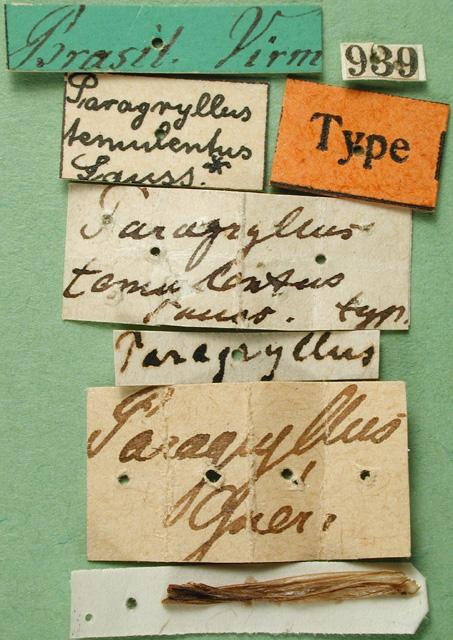 Brasil. Virm
939
Paragryllus
temulentus
Sauss.*
Type
Paragryllus
temulentus
Sauss. typ.
Paragryllus
Paragryllus
Guer.